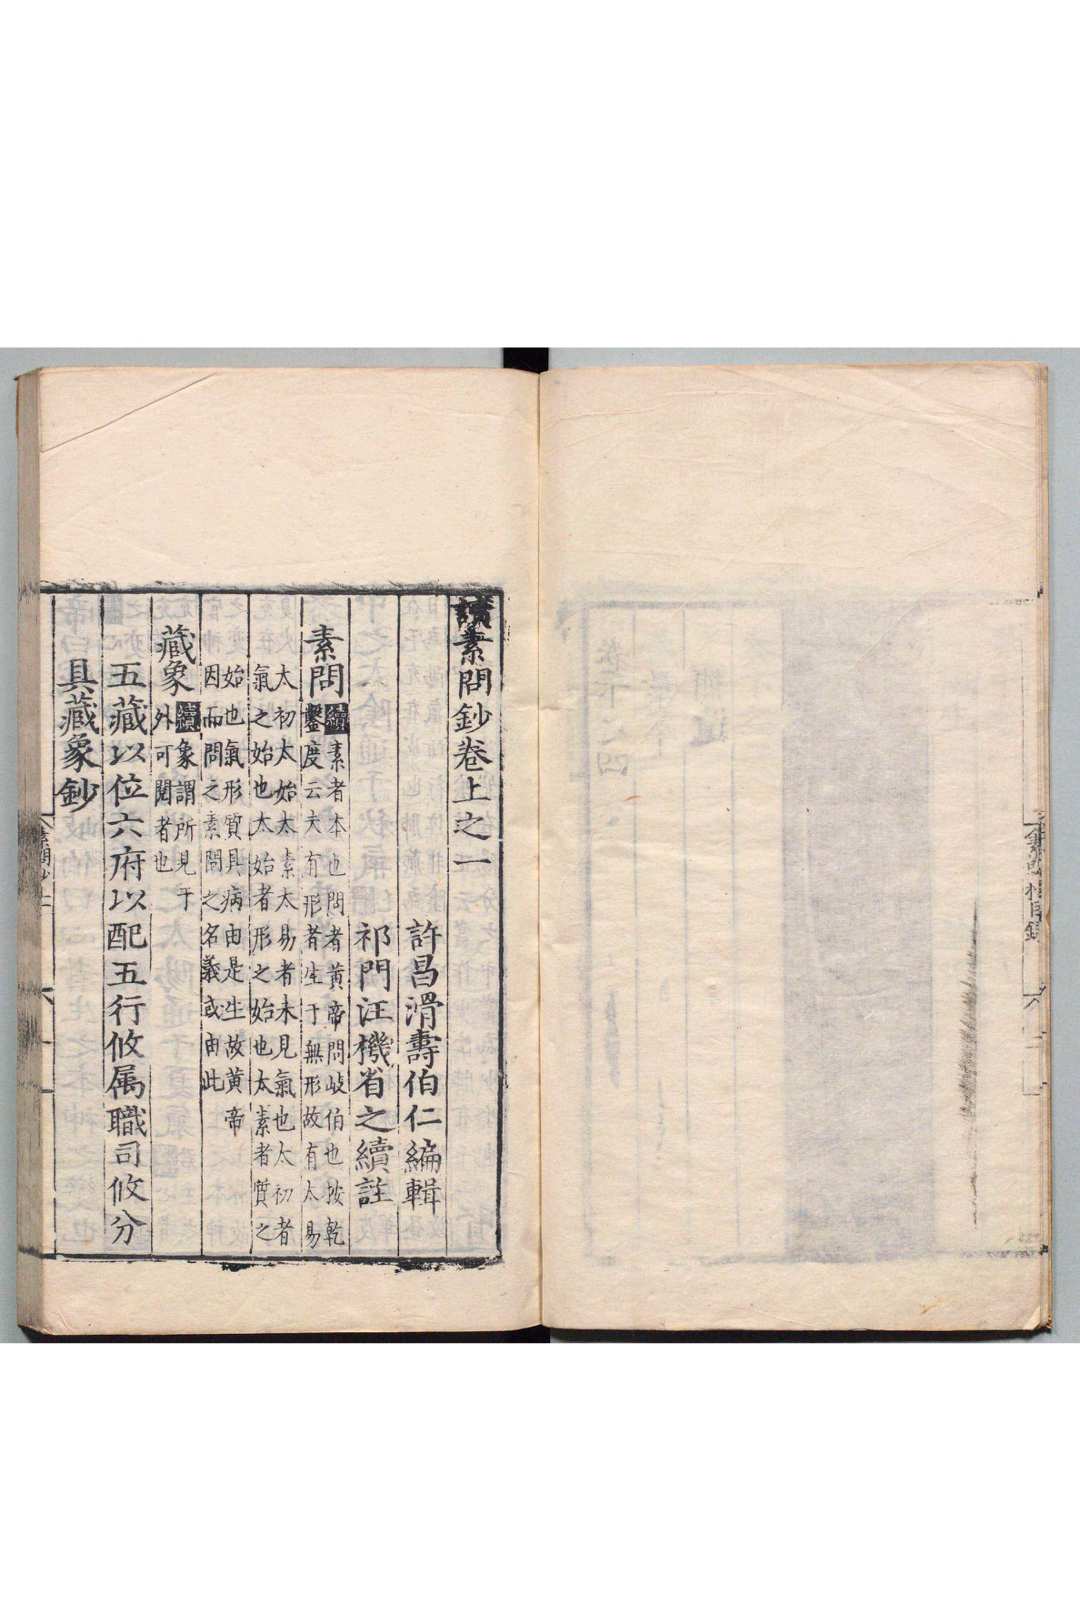 讀素問鈔卷上之一
許昌滑壽伯仁編輯
祁門汪機省之續註
素問
續素者本也問者黃帝問岐伯也按乾
鑿度云夫有形者生于無形故有太易
太初太始太素太易者未見氣也太初者
氣之始也太始者形之始也太素者質之
始也氣形質具病由是生故黃帝
因而問之素問之名義或由此
藏象
續象謂所見于
外可閱者也
五藏以位六府以配五行攸属職司攸分
具藏象鈔
素問鈔上